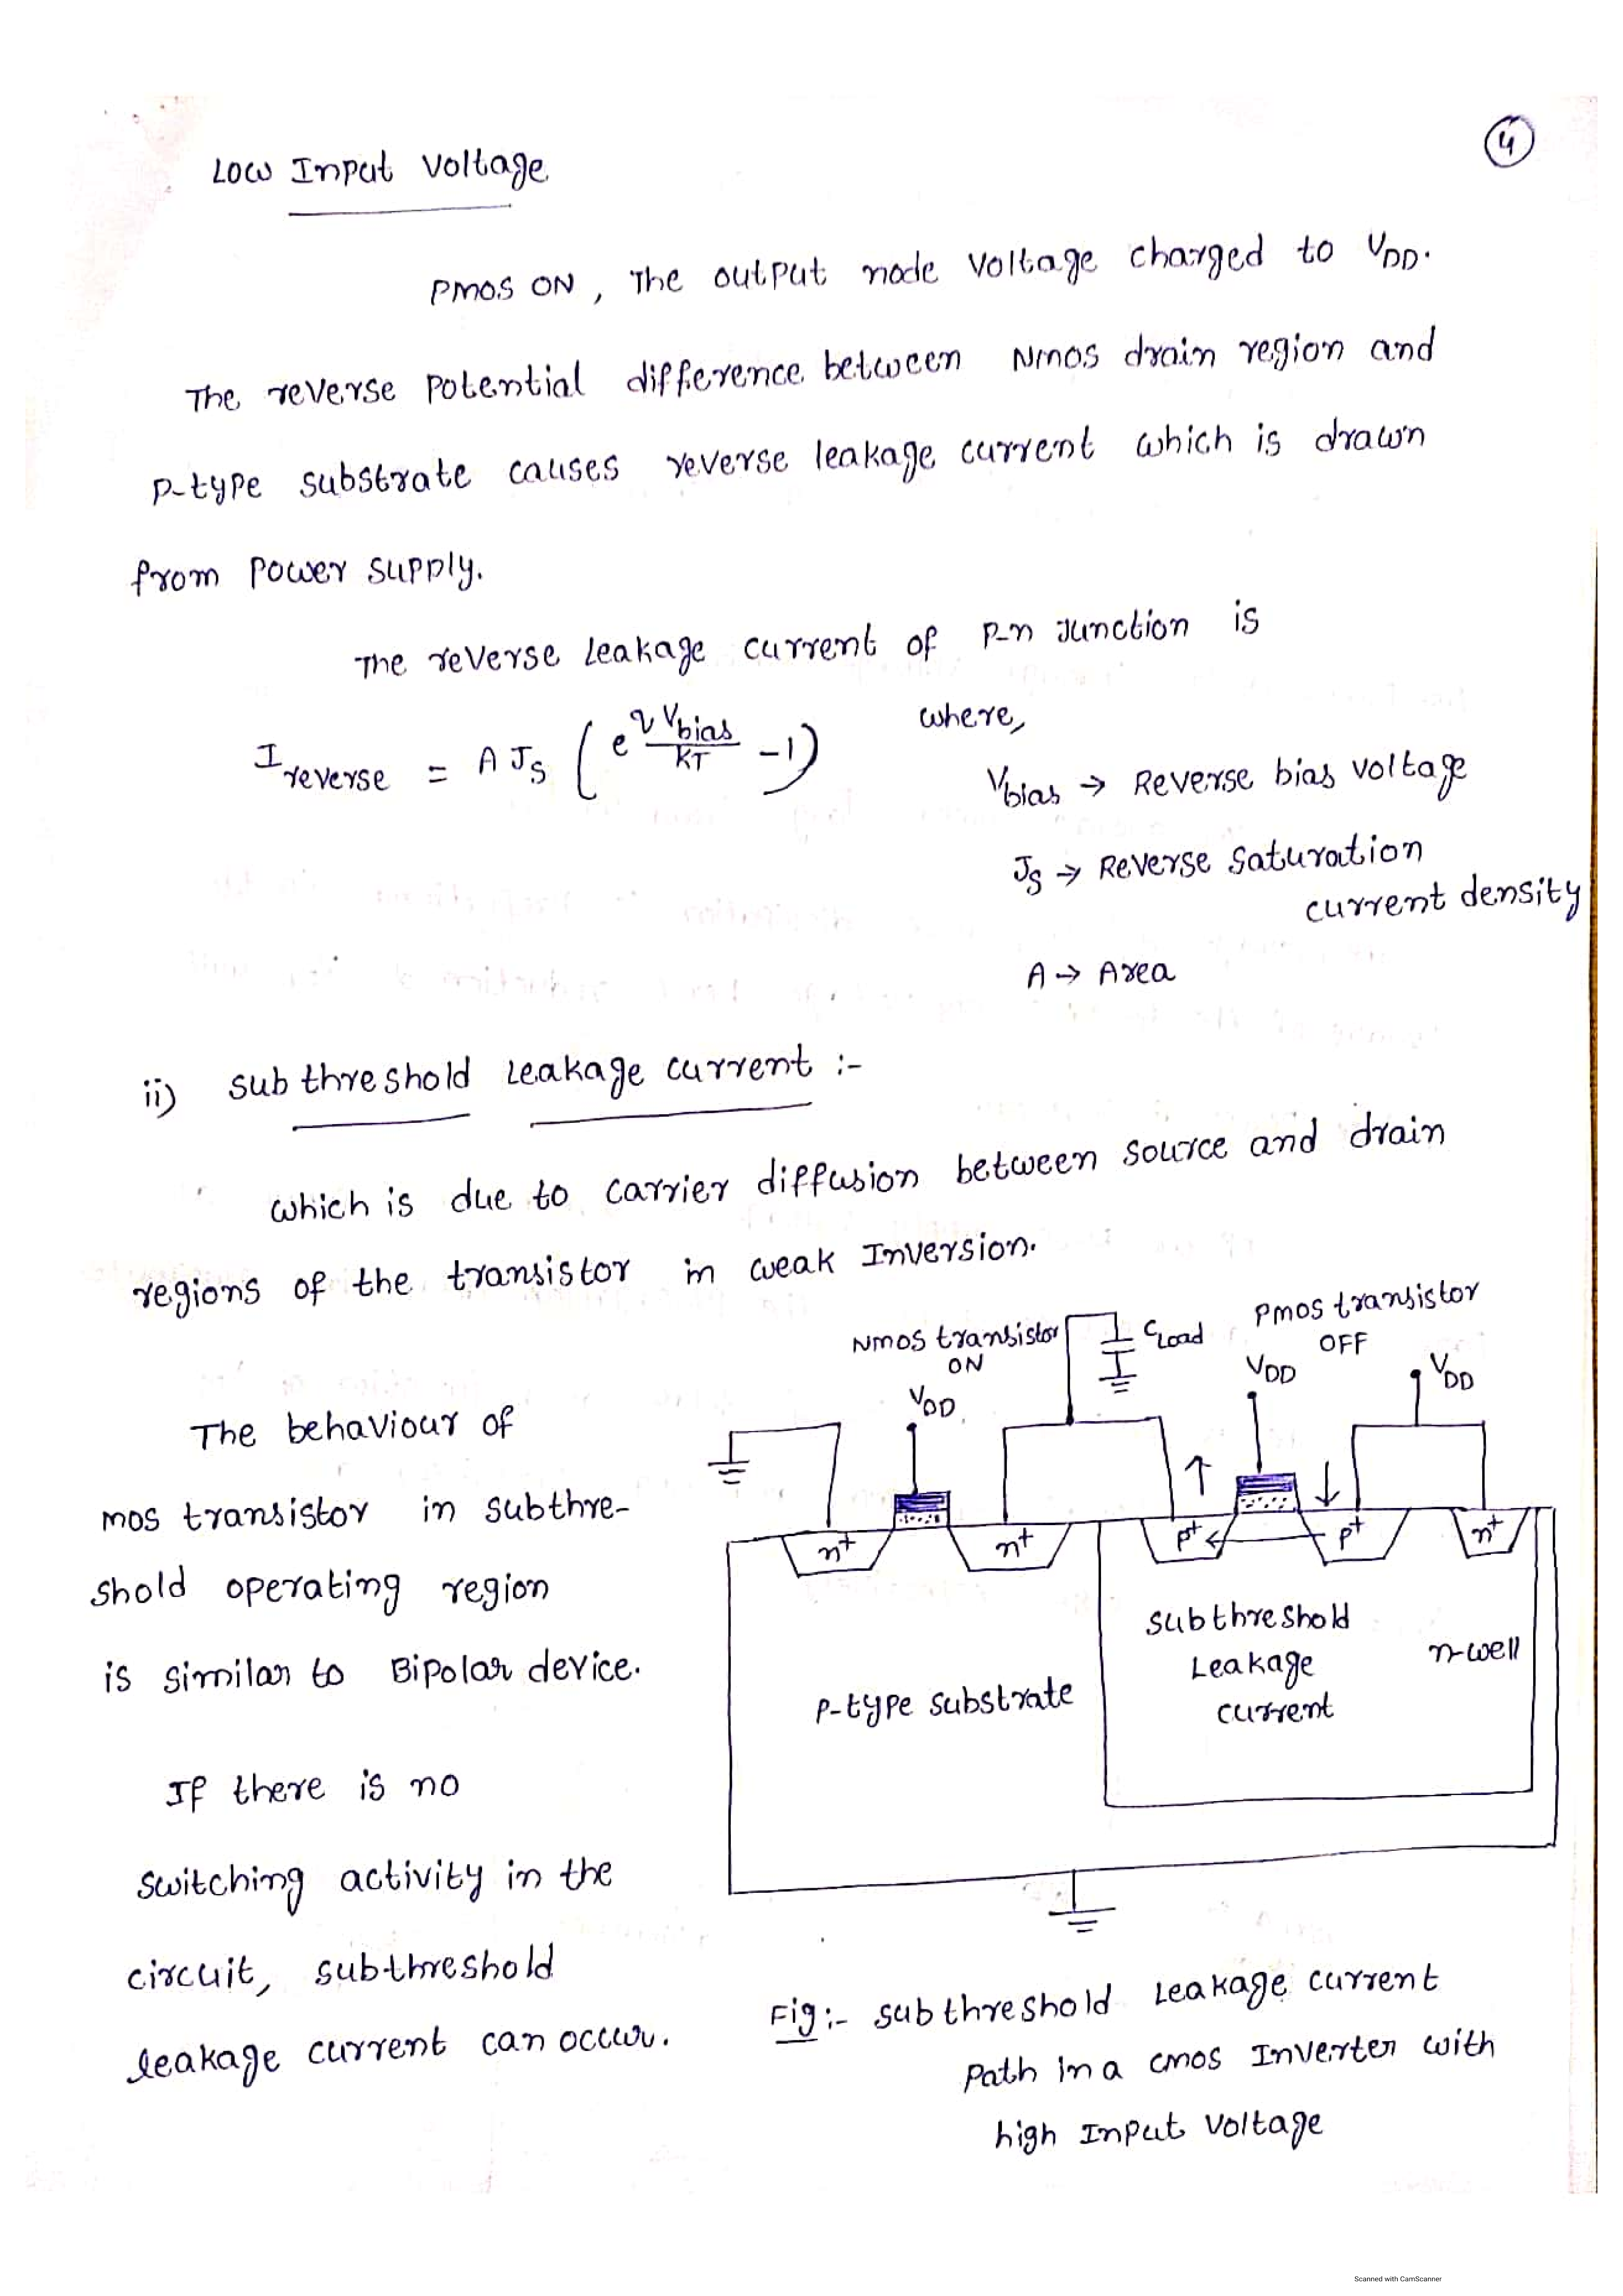 4
Low Input Voltage
PMOS ON, The output node voltage charged to VDD.
The reverse potential difference between NMOS drain region and
P-type substrate causes reverse leakage current which is drawn
from power supply.
The reverse leakage current of P-n Junction is
I reverse = A Js ( e^(q Vbias / KT) - 1 )
where,
Vbias → Reverse bias voltage
Js → Reverse saturation
current density
A → Area
ii) subthreshold Leakage current :-
which is due to carrier diffusion between source and drain
regions of the transistor in weak Inversion.
The behaviour of
mos transistor in subthre-
shold operating region
is similar to Bipolar device.
If there is no
switching activity in the
circuit, subthreshold
leakage current can occur.
NMOS transistor
ON
CLoad
PMOS transistor
OFF
VDD
VDD
VDD
n+
n+
P+
P+
n+
subthreshold
Leakage
current
n-well
P-type substrate
Fig:- subthreshold Leakage current
Path in a cmos Inverter with
high Input voltage
Scanned with CamScanner